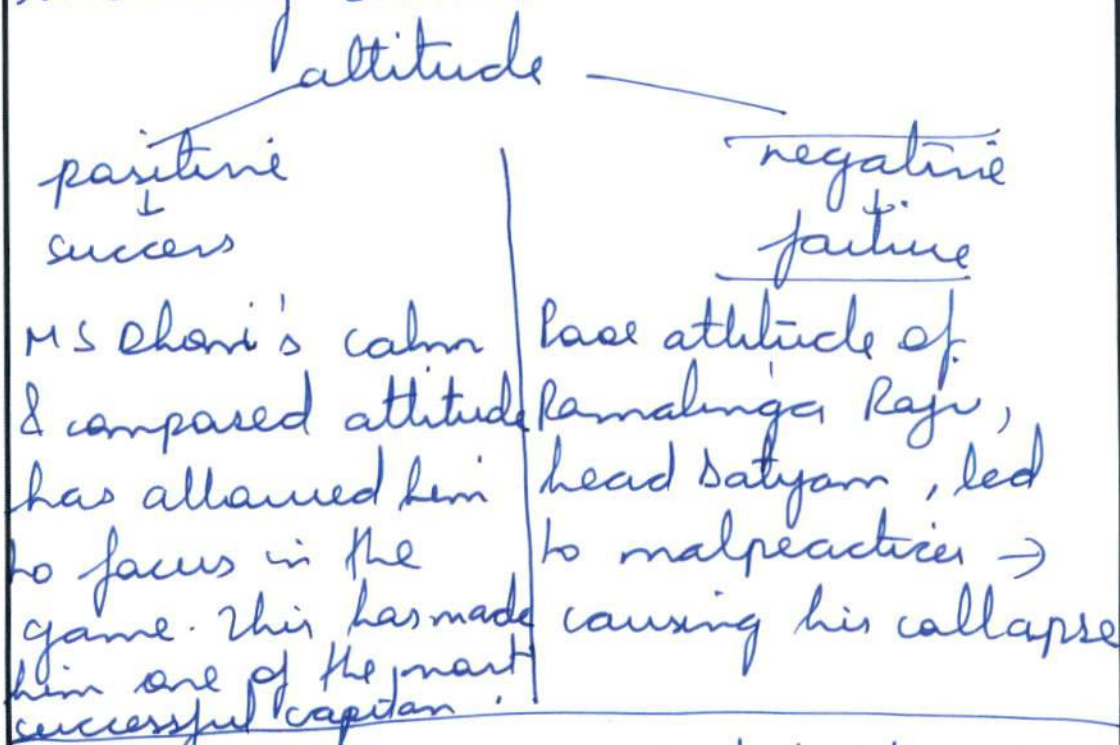 attitude
positive
↓
success
MS Dhoni's calm
& composed attitude
has allowed him
to focus in the
game. This has made
him one of the most
successful capitan.
negative
↓
failure
Poor attitude of
Ramalinga Raju,
head Satyam, led
to malpractices →
causing his collapse